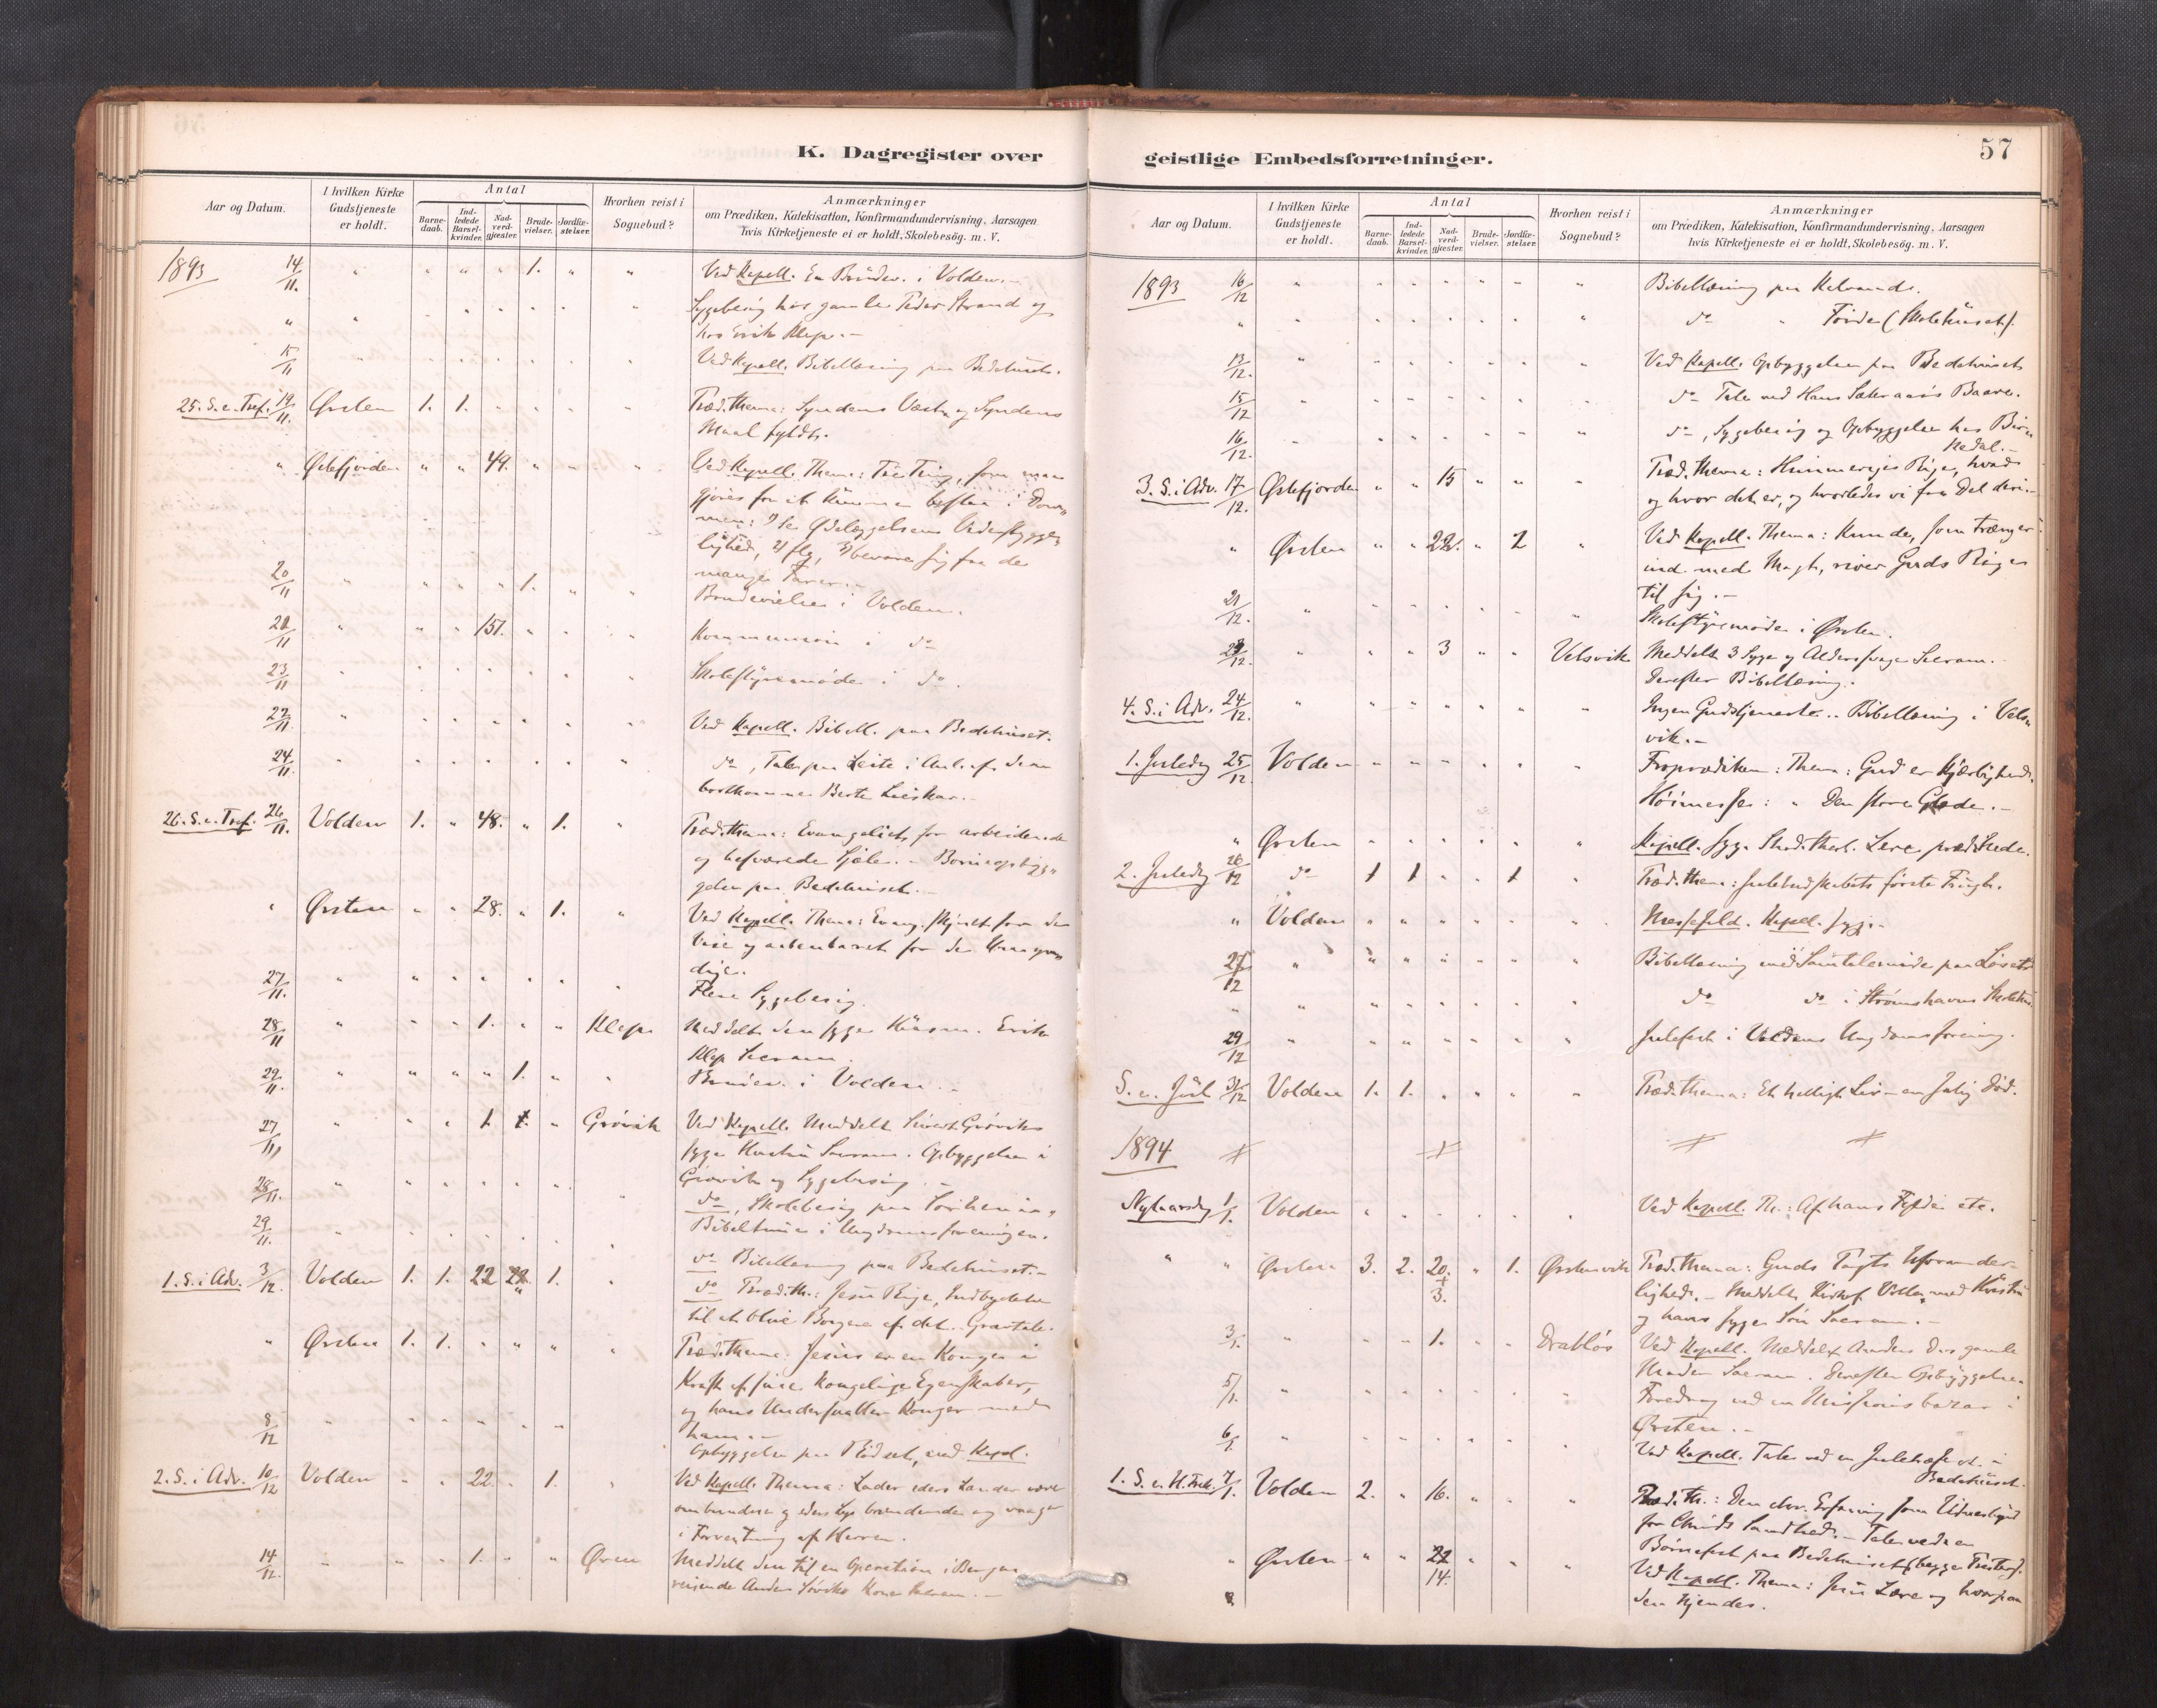 K. Dagregister over
Aar og Datum.
I hvilken Kirke
Gudstjeneste
er holdt.
Antal
Barne-
daab.
Ind-
ledede
Barsel-
kvinder.
Nad-
verd-
gjæster.
Brude-
vielser.
Jordfæ-
stelser.
Hvorhen reist i
Sognebud?
Anmærkninger
om Prædiken, Katekisation, Konfirmandundervisning, Aarsagen
hvis Kirketjeneste ei er holdt, Skolebesög. m. V.
1893 14/11. " " " " 1. " " Ved Kapell. En Brudev. i Volden.
Sygebesøg hos gamle Peder Strand og
hos Erik Klep.
15/11 Ved Kapell. Bibellæsning paa Bedehuset.
25. S. e. Tref. 19/11. Ørsten 1. 1. Præd. thema: Syndens Væxt og Syndens
Maal fyldt.
" Østefjorden " " 49. " " " Ved Kapell. Thema: Tre Ting, som maa
gjøres for at kunne bestaa i Dom-
men: 1) se Ødelæggelsens Vederstyggelighed, 2) fly, 3) bevare sig fra de
mange Farer.
20/11 1. Brudevielse i Volden.
151. Kommunion i do
23/11 Skolestyremøde i do.
22/11. Ved Kapell. Bibell. paa Bedehuset.
24/11. do, Tale paa Leite i Anl. af den
bortkomne Berte
26. S. e. Tref. 26/11. Volden 1. " 48. " 1. " Præd. thema: Evangeliet for arbeidende
og besværede Sjæle. - Børneopbyg-
gelse paa Bedehuset.
" Ørsten " " 28. " 1. " Ved Kapell. Thema: Evang. skjult for de
Vise og aabenbaret for de Umyn-
dige.
27/11. Flere Sygebesøg.
28/11 1. Klep Meddelt den syge Erik
Klep Sacram.
29/11. 1. Brudev. i Volden.
27/11 1. Grøvik Ved Kapell. Meddelt Sivert Grøviks
syge Hustru Sacram. Opbyggelse i
Grøvik og Sygebesøg.
28/11. do, Skolebesøg paa
29/11. Bibeltime i Ungdomsforeningen.
do Bibellæsning paa Bedehuset.
1. S. i Adv. 3/12. Volden 1. 1. 22 1. do Præd. th.: Jesu Rige, Indbydelse
til at blive Borgere af det. Gravtale.
" Ørsten 1. 1. Præd. thema: Jesus er en Konge i
Kraft af sine kongelige Egenskaber,
og hans Undersaatter Konger med
ham.
8/12 Opbyggelse paa ved Kapel.
2. S. i Adv. 10/12 Volden 22. 1. Ved Kapell. Thema: Lader eders Lænder være
ombundne og eders Lys brændende og vaager
i Forventning af Herren.
14/12. 1. Øren Meddelt den til en Operation i Bergen
reisende Anders Kone Sacram.
geistlige Embedsforretninger.
57
Aar og Datum.
I hvilken Kirke
Gudstjeneste
er holdt.
Antal
Barne-
daab.
Ind-
ledede
Barsel-
kvinder.
Nad-
verd-
gjæster.
Brude-
vielser.
Jordfæ-
stelser.
Hvorhen reist i
Sognebud?
Anmærkninger
om Prædiken, Katekisation, Konfirmandundervisning, Aarsagen
hvis Kirketjeneste ei er holdt, Skolebesög. m. V.
1893 16/12 Bibellæsning paa
do " Førde (Skolehuset).
13/12. Ved Kapell. Opbyggelse paa Bedehuset
15/12 do Tale ved Hans Baare.
16/12. do, Sygebesøg og Opbyggelse hos
3. S. i Adv. 17/12. Østefjorden " " 15 Præd. thema: Himmeriges Rige, hvad
og hvor det er, og hvorledes vi faa Del deri.
" Ørsten " " 22. " 2 Ved Kapell. Thema: Kun de, som trænger
ind med Magt, river Guds Rige
til sig.
21/12. Skolestyremøde i Ørsten.
3 Velsvik Meddelt 3 Syge og Aldersvage Sacram.
Derefter Bibellæsning.
4. S. i Adv. 24/12. Ingen Gudstjeneste. Bibellæsning i Vels-
vik.
1. Juledag 25/12. Volden Froprædiken: Thema: Gud er Kjærlighed.
Høimesse: " Den store Glæde.
" Ørsten Kapell. syg. Stud. theol. præd. Stede.
2. Juledag 26/12 do 1 1 1 Præd. thema: Julebudskabets første Frugt.
" Volden Messefald. Kapel. syg.
27/12 Bibellæsning med Samtalemøde paa
do do i Strømshavns Skolehus
29/12 Julefest i Voldens Ungdomsforening.
S. e. Jul 31/12 Volden 1. 1. Præd. thema: Et helligt Liv - en salig Død.
1894
Nytaarsdag 1/1. Volden Ved Kapell. Th.: Af hans Fylde etc.
" Ørsten 3. 2. 20. + 3. " 1. Ørstenvik Præd. thema: Guds Pagts Uforander-
lighed. - Meddelt med Hustru
og hans syge Søn Sacram.
3/1. 1. Drabløs Ved Kapell. Meddelt Anders gamle
Moder Sacram. Derefter Opbyggelse.
5/1. Foredrag ved en Missionsbazar i
Ørsten.
6/1. Ved Kapell. Tale ved en Julefest i
Bedehuset.
1. S. e. H. Trek. 7/1. Volden 2. " 16. Præd. th.: Den chr. Erfaring som Vidnesbyrd
for Christi Sandhed. - Tale ved en
Børnefest paa Bedehuset (begge Prester).
" Ørsten 22 14. Ved Kapell. Thema: Jesu Lære og hvorpaa
den kjendes.